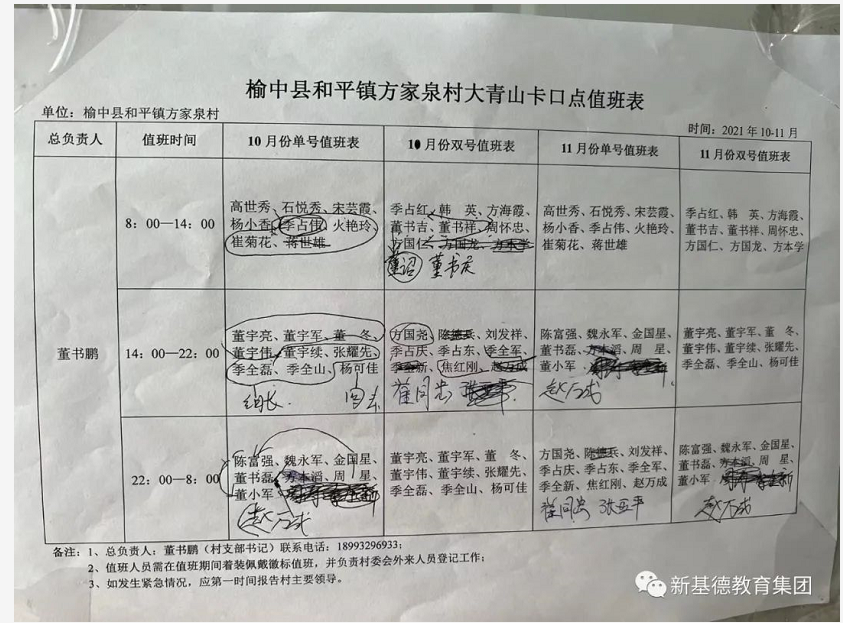 榆中县和平镇方家泉村大青山卡口点值班表
单位：榆中县和平镇方家泉村
时间：2021年10-11月
总负责人 值班时间 10月份单号值班表 10月份双号值班表 11月份单号值班表 11月份双号值班表
董书鹏
8：00—14：00
高世秀、石悦秀、宋芸霞、
杨小香、季占伟、火艳玲、
崔菊花、蒋世雄
季占红、韩　英、方海霞、
董书吉、董书祥、周怀忠、
方国仁、方国龙、方本学
董书庆
高世秀、石悦秀、宋芸霞、
杨小香、季占伟、火艳玲、
崔菊花、蒋世雄
季占红、韩　英、方海霞、
董书吉、董书祥、周怀忠、
方国仁、方国龙、方本学
14：00—22：00
董宇亮、董宇军、董　冬、
董宇伟、董宇续、张耀先、
季全磊、季全山、杨可佳
组长
方国尧、陈德兵、刘发祥、
季占庆、季占东、季全军、
季全新、焦红刚、赵万成
崔同忠
陈富强、魏永军、金国星、
董书磊、方本滔、周　星、
董小军、
赵万成
董宇亮、董宇军、董　冬、
董宇伟、董宇续、张耀先、
季全磊、季全山、杨可佳
22：00—8：00
陈富强、魏永军、金国星、
董书磊、方本滔、周　星、
董小军、
赵万成
董宇亮、董宇军、董　冬、
董宇伟、董宇续、张耀先、
季全磊、季全山、杨可佳
方国尧、陈德兵、刘发祥、
季占庆、季占东、季全军、
季全新、焦红刚、赵万成
崔同忠 张亚平
陈富强、魏永军、金国星、
董书磊、方本滔、周　星、
董小军、
赵万成
备注：1、总负责人：董书鹏（村支部书记）联系电话：18993296933；
2、值班人员需在值班期间着装佩戴徽标值班，并负责村委会外来人员登记工作；
3、如发生紧急情况，应第一时间报告村主要领导。
新基德教育集团